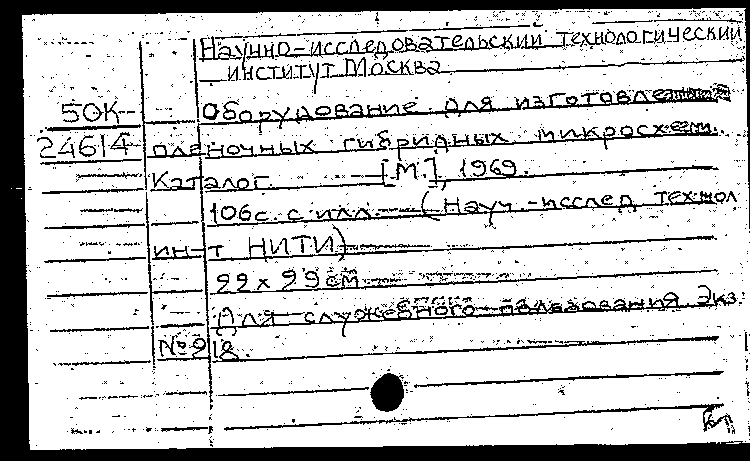 Научно-исследовательский технологический
институт Москва
50К-
24614
Оборудование для изготовления
пленочных гибридных микросхем.
Каталог. [М.], 1969.
106с. с илл. (Науч.-исслед. технол
ин-т НИТИ)
22х29см.
Для служебного пользования. Экз.
№ 218.